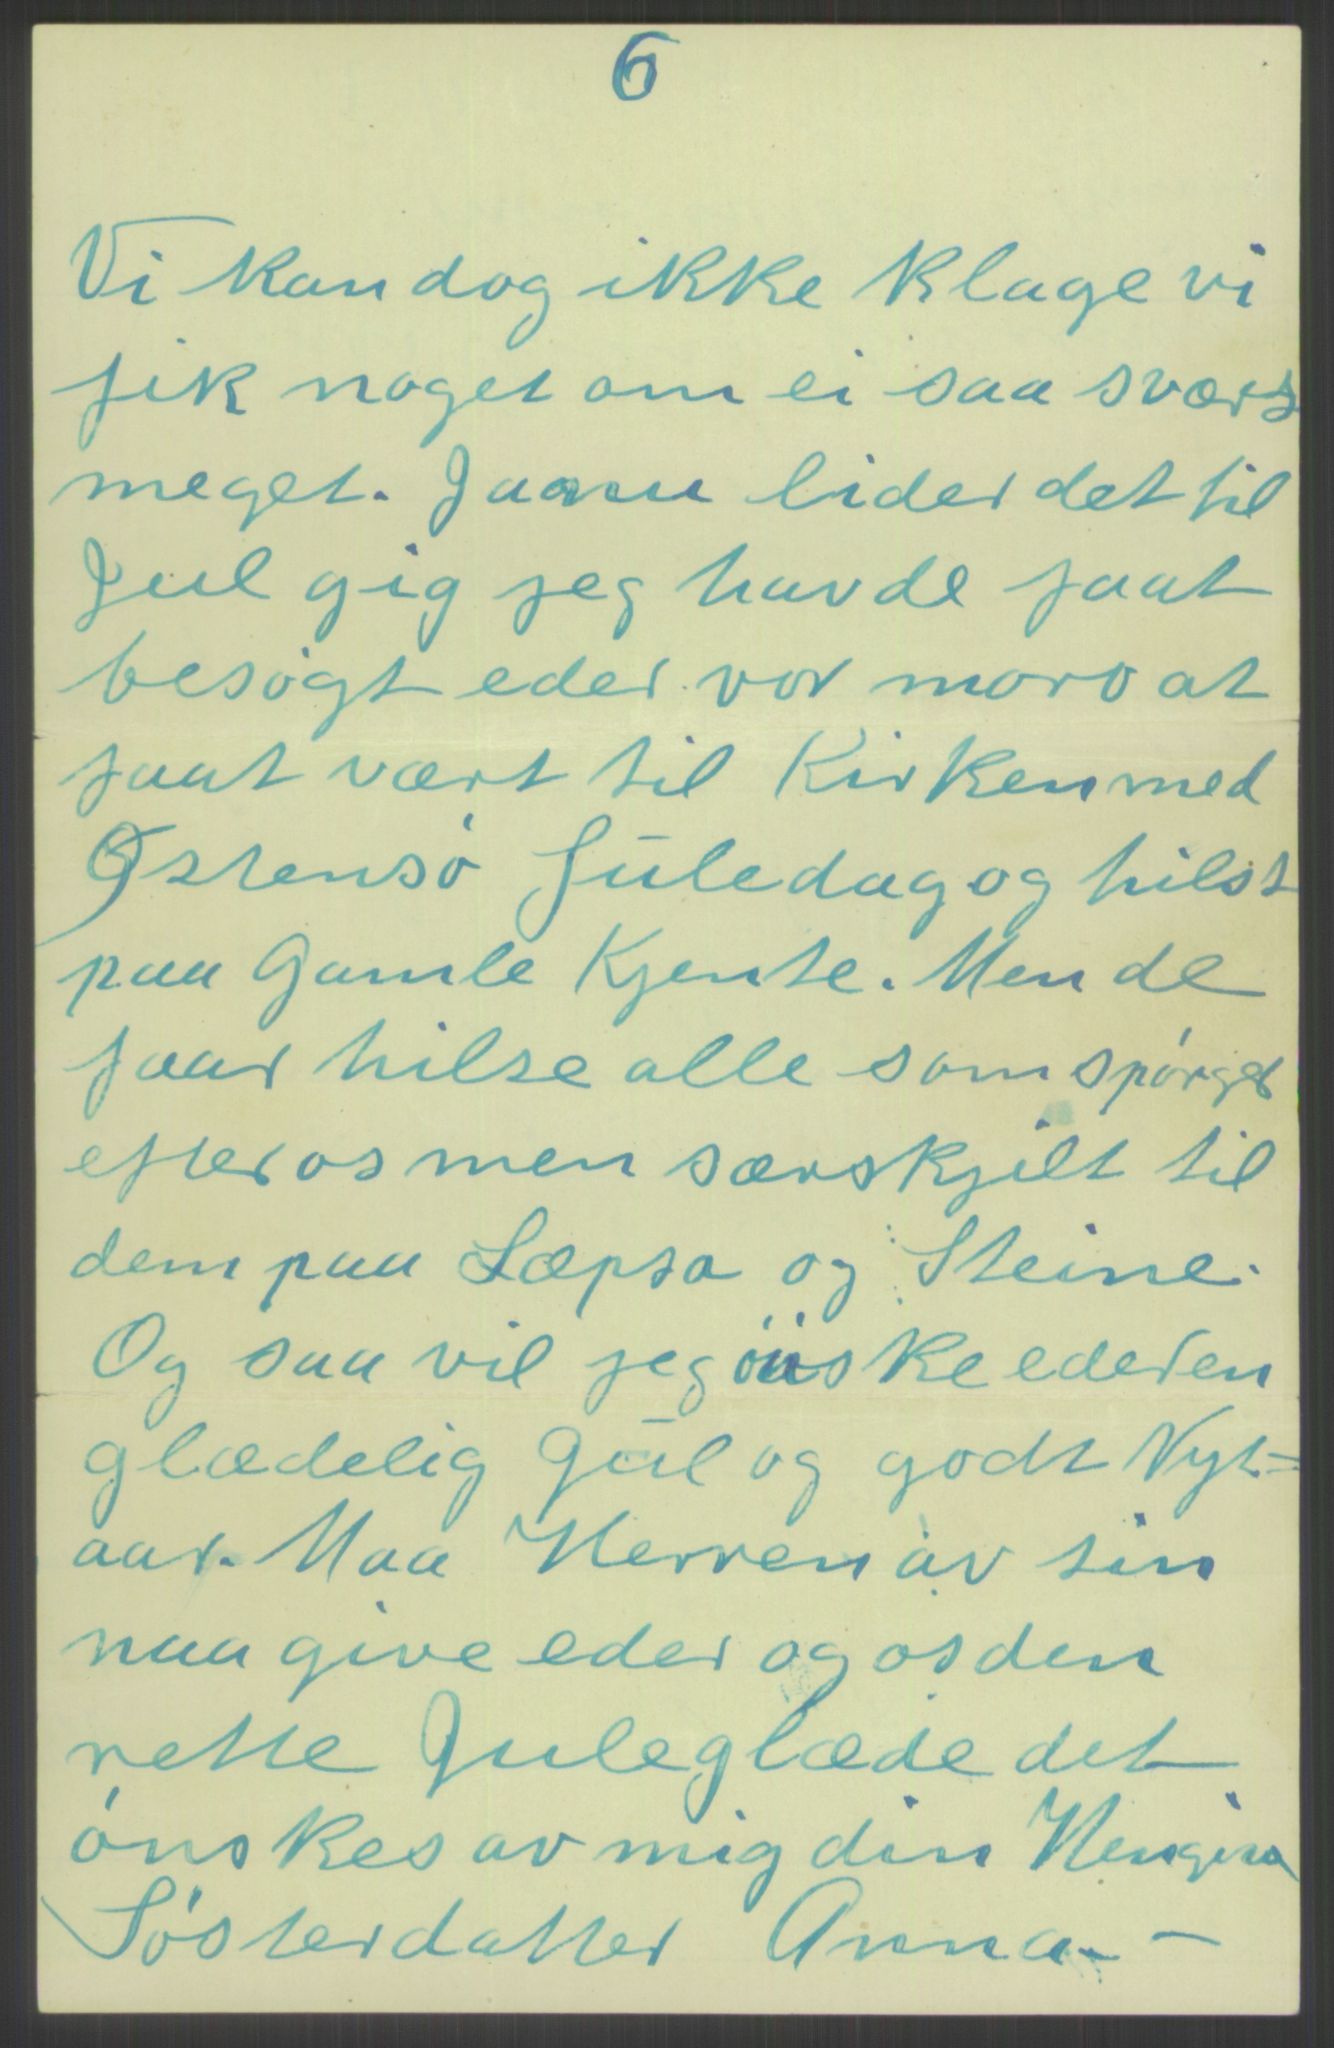 6
Vi kan dog ikke klage vi
fik noget om ei saa svært
meget. Ja nu lider det til
Jul gig jeg havde faat
besøgt eder vor moro at
faat vært til Kirken med
Østensø Juledag og hilst
paa Gamle Kjente. Men de
faar hilse alle som spørger
efter os men særskjilt til
dem paa Læpsa og Steine.
Og saa vil jeg ønske eder en
glædelig Jul og godt Nyt=
aar. Maa Herren av sin
naa give eder og os den
rette Juleglæde det
ønskes av mig din
Søsterdatter Anna. -